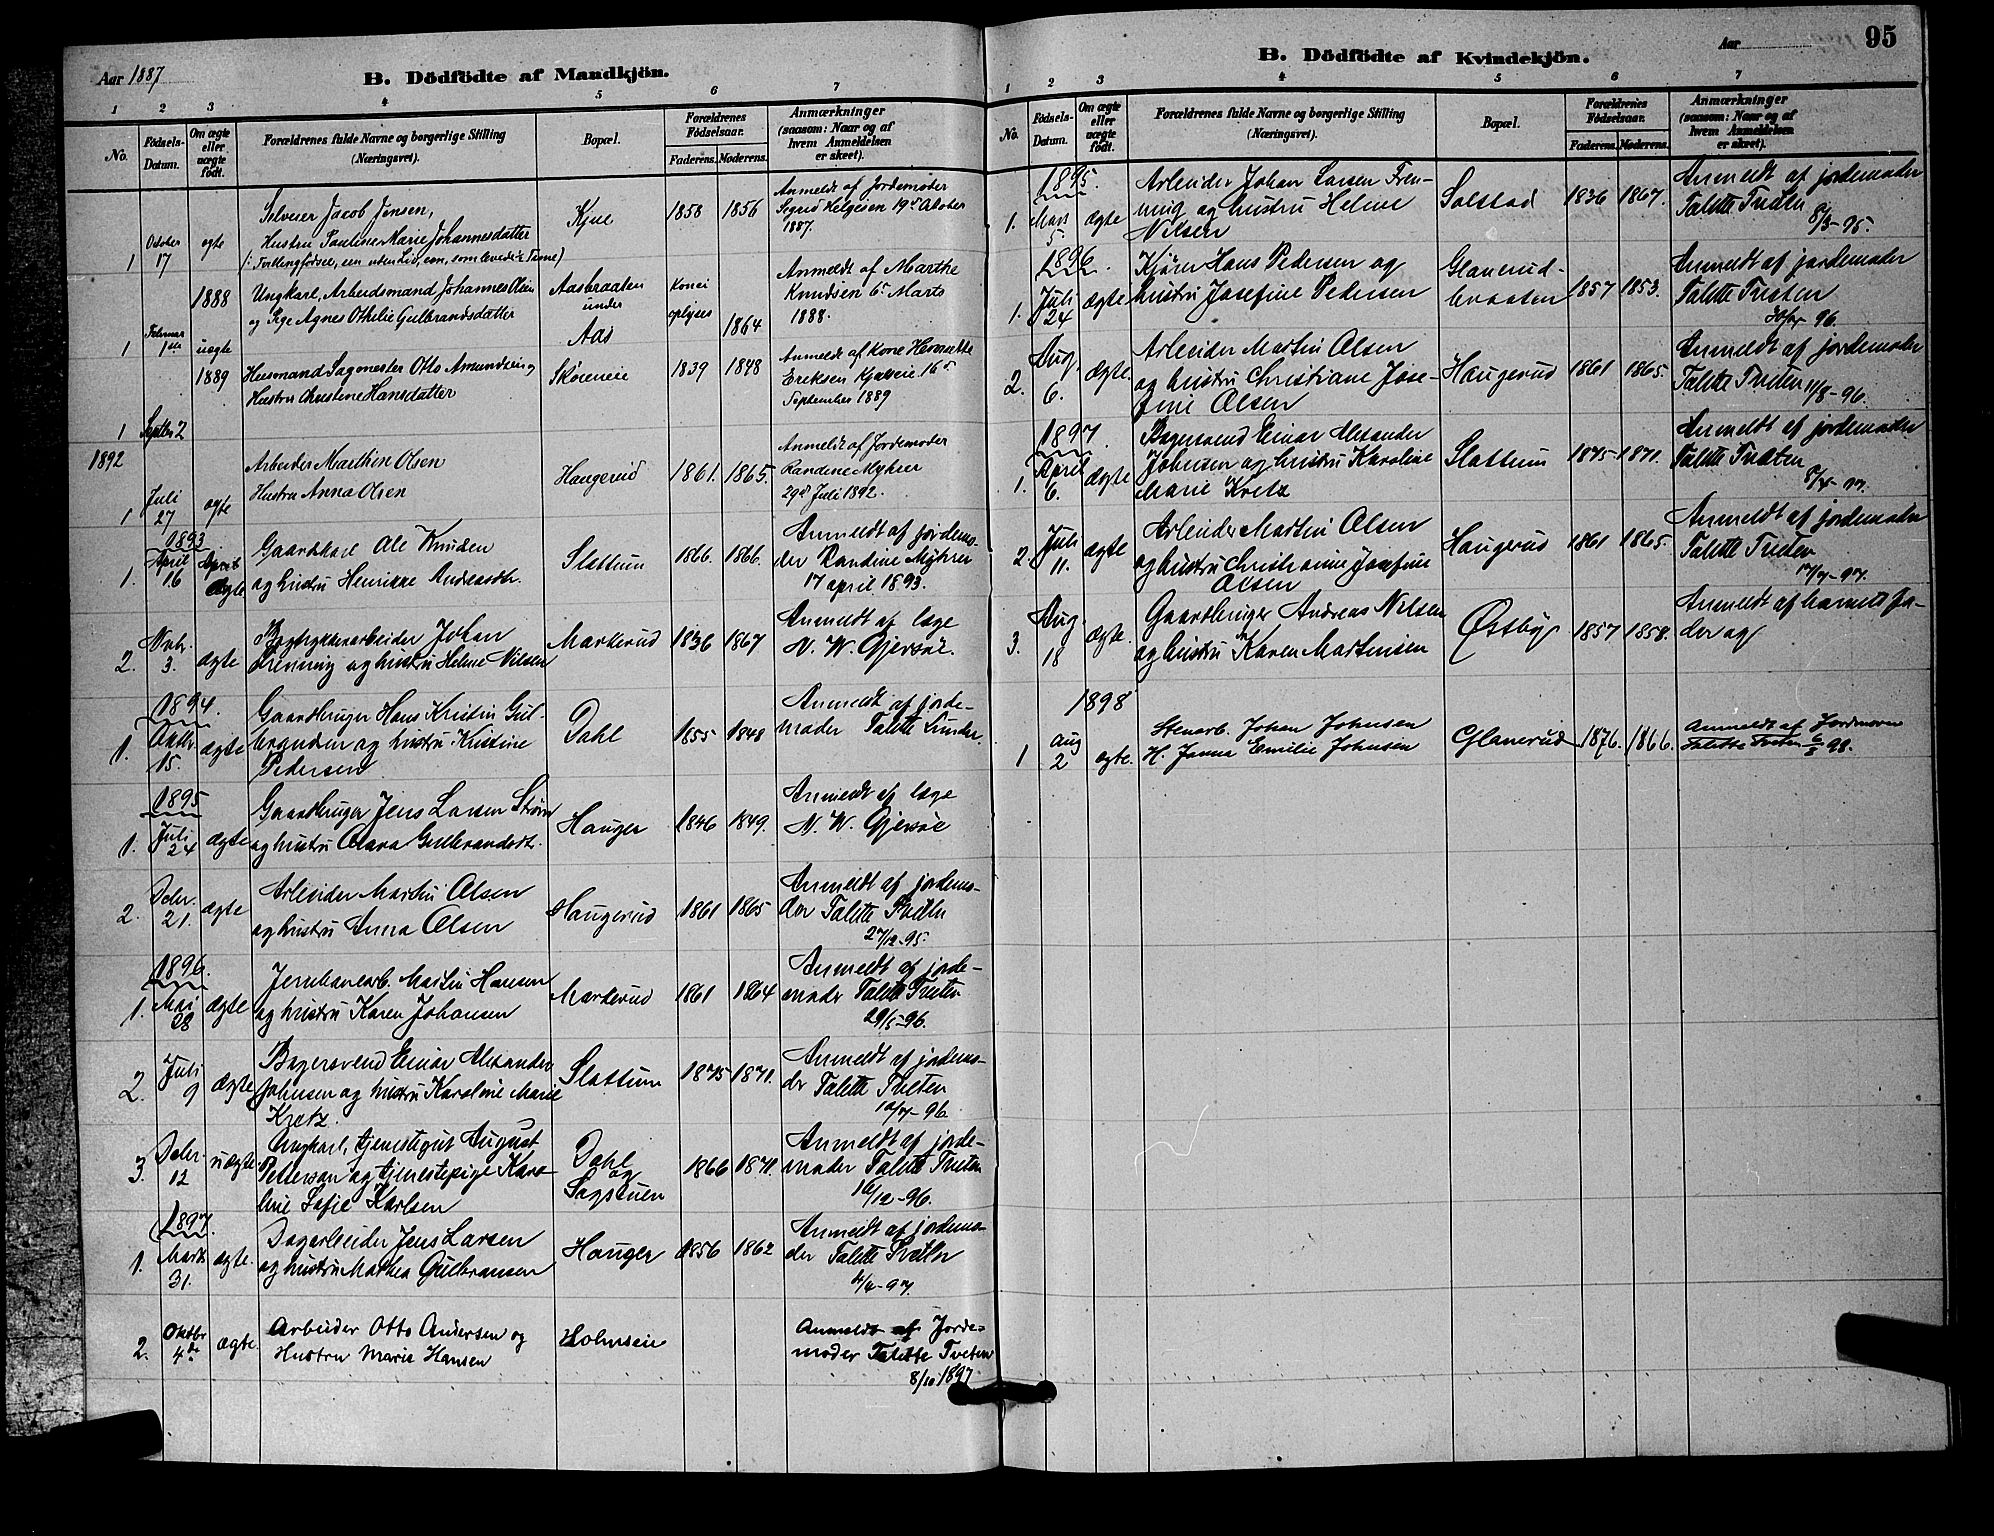 Aar 1887
B. Dödfödte af Mandkjön.
1 2 3 4 5 6 7
No.
Födsels-Datum.
Om ægte eller uægte födt.
Forældrenes fulde Navne og borgerlige Stilling (Næringsvei).
Bopæl.
Forældrenes Födselsaar.
Faderens. Moderens.
Anmærkninger (saasom: Naar og af hvem Anmeldelsen er skeet).
1 October 17 ægte
Selveier Jacob Jensen,
Hustru Pauline Marie Johannesdatter
(: Tvillingfødsel, een uden Liv, een, som levede
1858 1856
Anmeldt af Jordemoder
Segrid Helgesen 19de October
1887.
1888
1 Februar uægte
Ungkarl, Arbeidsmand Johannes Olsen
og Pige Agnes Othelie Gulbrandsdatter
Aasbraaten
under
Aas
Kan ei
oplyses 1864
Anmeldt af Marthe
Knudsen 6te Marts
1888.
1889
1 Septbr 2
Husmand Sagmester Otto Amundsen og
Hustru Christine Hansdatter
1839 1848
Anmeldt af Kone Henriette
Eriksen 16de
September 1889
1892
1 Juli 27 ægte
Arbeider Marthin Olsen
Hustru Anna Olsen
Haugerud
1861. 1865.
Anmeldt af Jordemoder
Randine Myhrer
29de Juli 1892.
1893
1. April 16 ægte
Gaardkarl Ole Knudsen
og hustru Henrikke Andreasdtr.
Slattum
1866. 1866.
Anmeldt af jordemo-
der Randine Myhrer
17 april 1893.
2. Nvbr. 3. ægte
Johan
Frenning og hustru Helene Nilsen
Markerud
1836 1867
Anmeldt af læge
N. W. Gjersøe.
1894.
1. Octbr. 15. ægte
Gaardbruger Hans Kristin Gul-
brandsen og hustru Kristine
Pedersen
Dahl
1855 1848
Anmeldt af jorde-
moder Talette Sunder.
1895
1. Juli 24 ægte
Gaardbruger Jens Larsen Strøm
og hustru Clara Gulbrandsdtr.
Hauger
1846 1849.
Anmeldt af læge
N. W. Gjersøe
2. Dcbr. 21. ægte
Arbeider Martin Olsen
og hustru Anna Olsen
Haugerud
1861 1865
Anmeldt af jordemo-
der Talette Tveten
27/12-95.
1896.
1. Mai 28 ægte
Jernbanearb. Martin Hansen
og hustru Karen Johansen
Markerud
1861 1864
Anmeldt af jorde-
moder Talette Tveten
29/5-96.
2. Juli 9 ægte
Bagersvend Einar Alexander
Johnsen og hustru Karoline Marie
Kretz.
Slattum
1875 1871.
Anmeldt af jordemo-
der Talette Tveten
10/7-96.
3. Dcbr. 12 uægte
Ungkarl, tjenestegut August
Petterson og tjenestepige Karo-
line Sofie Karlsen
Dahl
og
Sagstuen
1866 1871.
Anmeldt af jorde-
moder Talette Tveten
16/12-96.
1897.
1. Marts 31. ægte.
Dagarbeider Jens Larsen
og hustru Marthea Gulbransen
Hauger
1856 1862
Anmeldt af jordemo-
der Talette Tveten
4/4-97.
2. Oktbr 4de ægte.
Arbeider Otto Andersen og
Hustru Marie Hansen
Holmseie
Anmeldt af Jorde-
moder Talette Tveten
8/10 1897
Aar
95
B. Dödfödte af Kvindekjön.
1 2 3 4 5 6 7
No.
Födsels-Datum.
Om ægte eller uægte födt.
Forældrenes fulde Navne og borgerlige Stilling (Næringsvei).
Bopæl.
Forældrenes Födselsaar.
Faderens. Moderens.
Anmærkninger (saasom: Naar og af hvem Anmeldelsen er skeet).
1895.
1. Mars 5. ægte
Arbeider Johan Larsen Fren-
ning og hustru Helene
Nilsen
Solstad
1836 1867.
Anmeldt af jordemoder
Talette Tveten
8/3-95.
1896.
1. Juli 24 ægte
Kjører Hans Pedersen og
hustru Josefine Pedersen
Glanerud-
braaten
1857 1853.
Anmeldt af jordemoder
Talette Tveten
96.
2. Aug. 6. ægte.
Arbeider Martin Olsen
og hustru Christiane Jose-
fine Olsen
Haugerud
1861 1865.
Anmeldt af jordemoder
Talette Tveten 11/8-96.
1897
1. April 6. ægte
Bagersvend Einar Alexander
Johnsen og hustru Karoline
Marie Kretz
Slattum
1875 1871.
Anmeldt af jordemoder
Talette Tveten
8/4-97.
2 Juli 11. ægte
Arbeider Martin Olsen
og hustru Christiane Josefine
Olsen
Haugerud
1861 1865.
Anmeldt af jordemoder
Talette Tveten
17/7-97.
3. Aug. 18 ægte.
Gaardbruger Andreas Nilsen
og hustru Karen Martinsen
Østby
1857 1858.
Anmeldt af barnets fa-
der og
1898
1 Aug 2 ægte.
Stenarb. Johan Johnsen
H. Janna Emilie Johnsen
Glanerud
1876. 1866.
Anmeldt af Jordmoren
Talette Tveten 98.